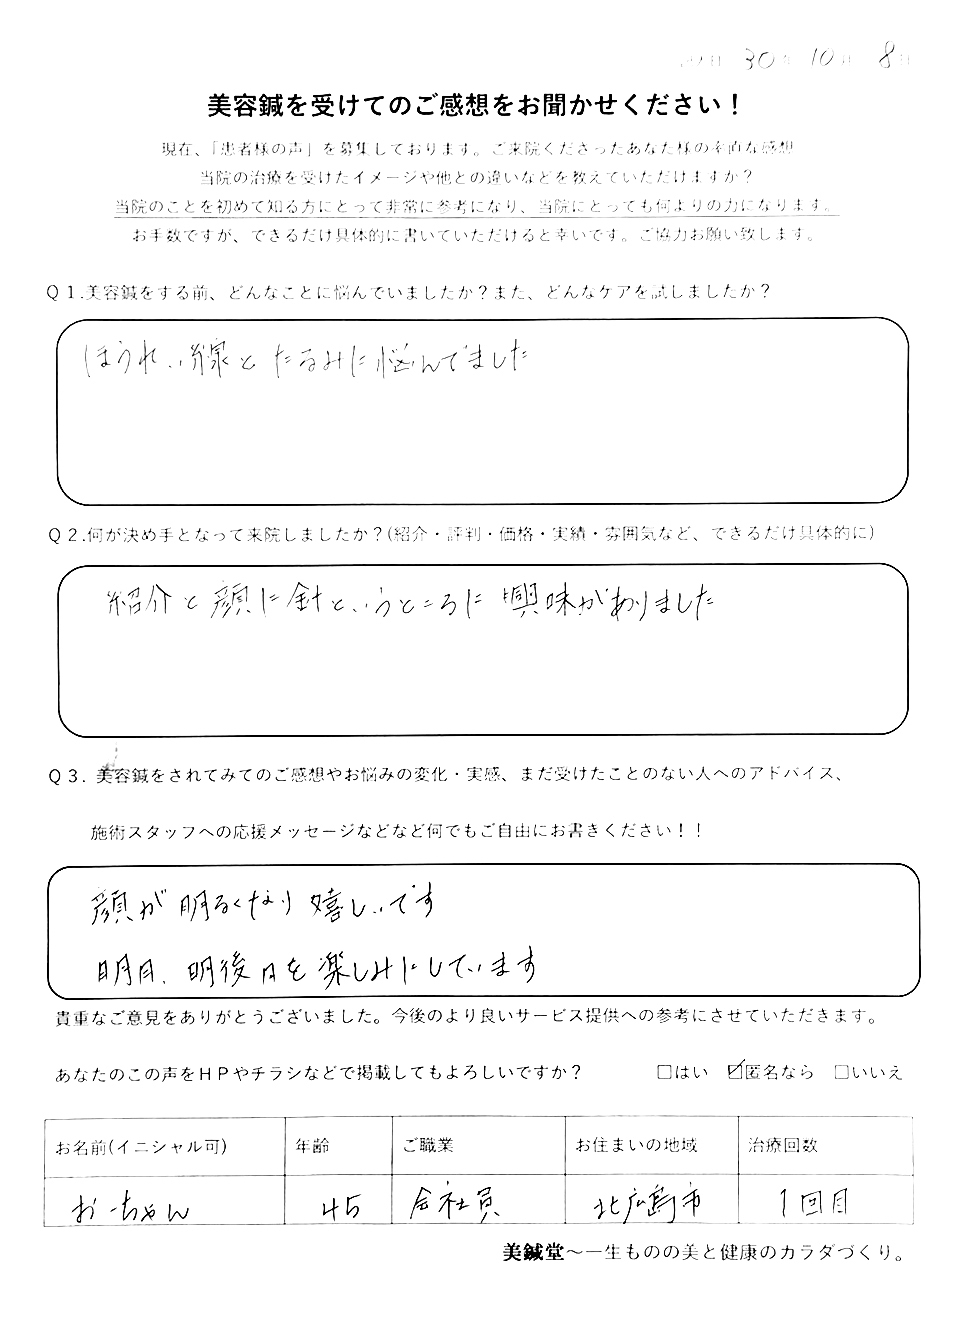 30年 10月 8日
美容鍼を受けてのご感想をお聞かせください！
現在、「患者様の声」を募集しております。ご来院くださったあなた様の率直な感想
当院の治療を受けたイメージや他との違いなどを教えていただけますか？
当院のことを初めて知る方にとって非常に参考になり、当院にとっても何よりの力になります。
お手数ですが、できるだけ具体的に書いていただけると幸いです。ご協力お願い致します。
Ｑ１.美容鍼をする前、どんなことに悩んでいましたか？また、どんなケアを試しましたか？
ほうれい線とたるみに悩んでました
Ｑ２.何が決め手となって来院しましたか？(紹介・評判・価格・実績・雰囲気など、できるだけ具体的に)
紹介と顔に針というところに興味がありました
Ｑ３. 美容鍼をされてみてのご感想やお悩みの変化・実感、まだ受けたことのない人へのアドバイス、
施術スタッフへの応援メッセージなどなど何でもご自由にお書きください！！
顔が明るくなり嬉しいです
明日、明後日を楽しみにしています
貴重なご意見をありがとうございました。今後のより良いサービス提供への参考にさせていただきます。
あなたのこの声をＨＰやチラシなどで掲載してもよろしいですか？ □はい ☑匿名なら □いいえ
お名前(イニシャル可) 年齢 ご職業 お住まいの地域 治療回数
おーちゃん 45 会社員 北広島市 1回目
美鍼堂～一生ものの美と健康のカラダづくり。